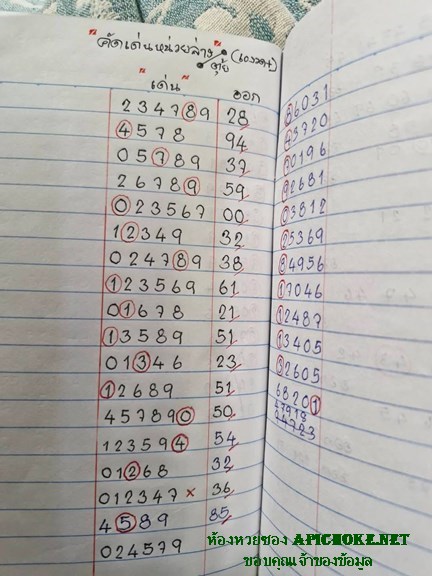 "คัดเด่นหน่วยล่าง" (เองวด+)
ตุ้ย
"เด่น" ออก
234789 28
4578 94
05789 37
26789 59
023567 00
12349 32
024789 38
123569 61
01678 21
13589 51
01346 23
12689 51
457890 50
123594 54
01268 32
012347 × 36
4589 85
024579
86031
43720
70196
92681
03812
25369
84956
17046
12487
13405
32605
68201
47918
44723
ห้องหวยซอง APICHOKE.NET
ขอบคุณเจ้าของข้อมูล